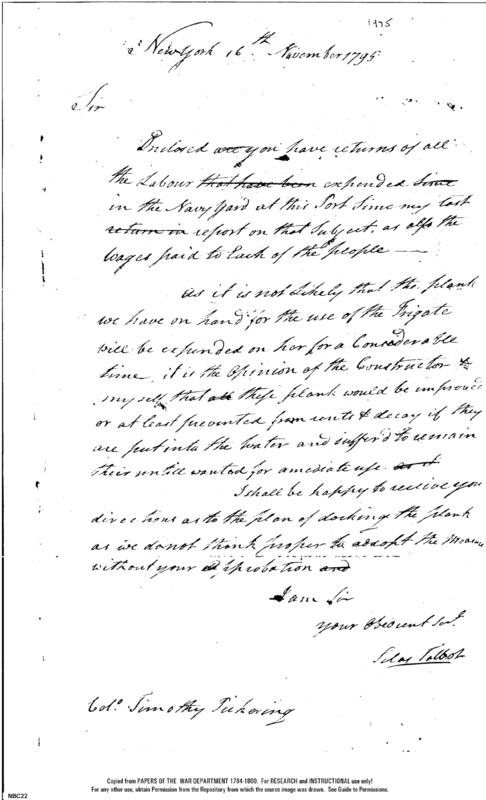 1975
New York 16th November 1795
Sir
Enclosed are you have returns of all
the Labour that have been expended Sinse
in the Navy Yard at this Port Sinse my last
return on report on that Subject, as also the
Wages paid to Each of the people —
As it is not likely that the plank
we have on hand for the use of the Frigate
will be expended on her for a Considerable
time, it is the Opinion of the Constructor &
myself, that all these plank would be improved
or at least prevented from rents & decay if they
are put into the water and suffer'd to remain
their untill wanted for amediate use. as it
I shall be happy to receive you
directions as to the plan of docking the plank
as we do not think proper to adopt the Measure
without your Approbation and
I am Sir
Your Obedient Sert.
Silas Talbot
Colo. Timothy Pickering
Copied from PAPERS OF THE WAR DEPARTMENT 1784-1800. For RESEARCH and INSTRUCTIONAL use only!
For any other use, obtain Permission from the Repository from which the source image was drawn. See Guide to Permissions.
NBC22